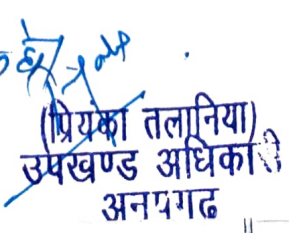 (प्रियंका तलानिया)
उपखण्ड अधिकारी
अनूपगढ